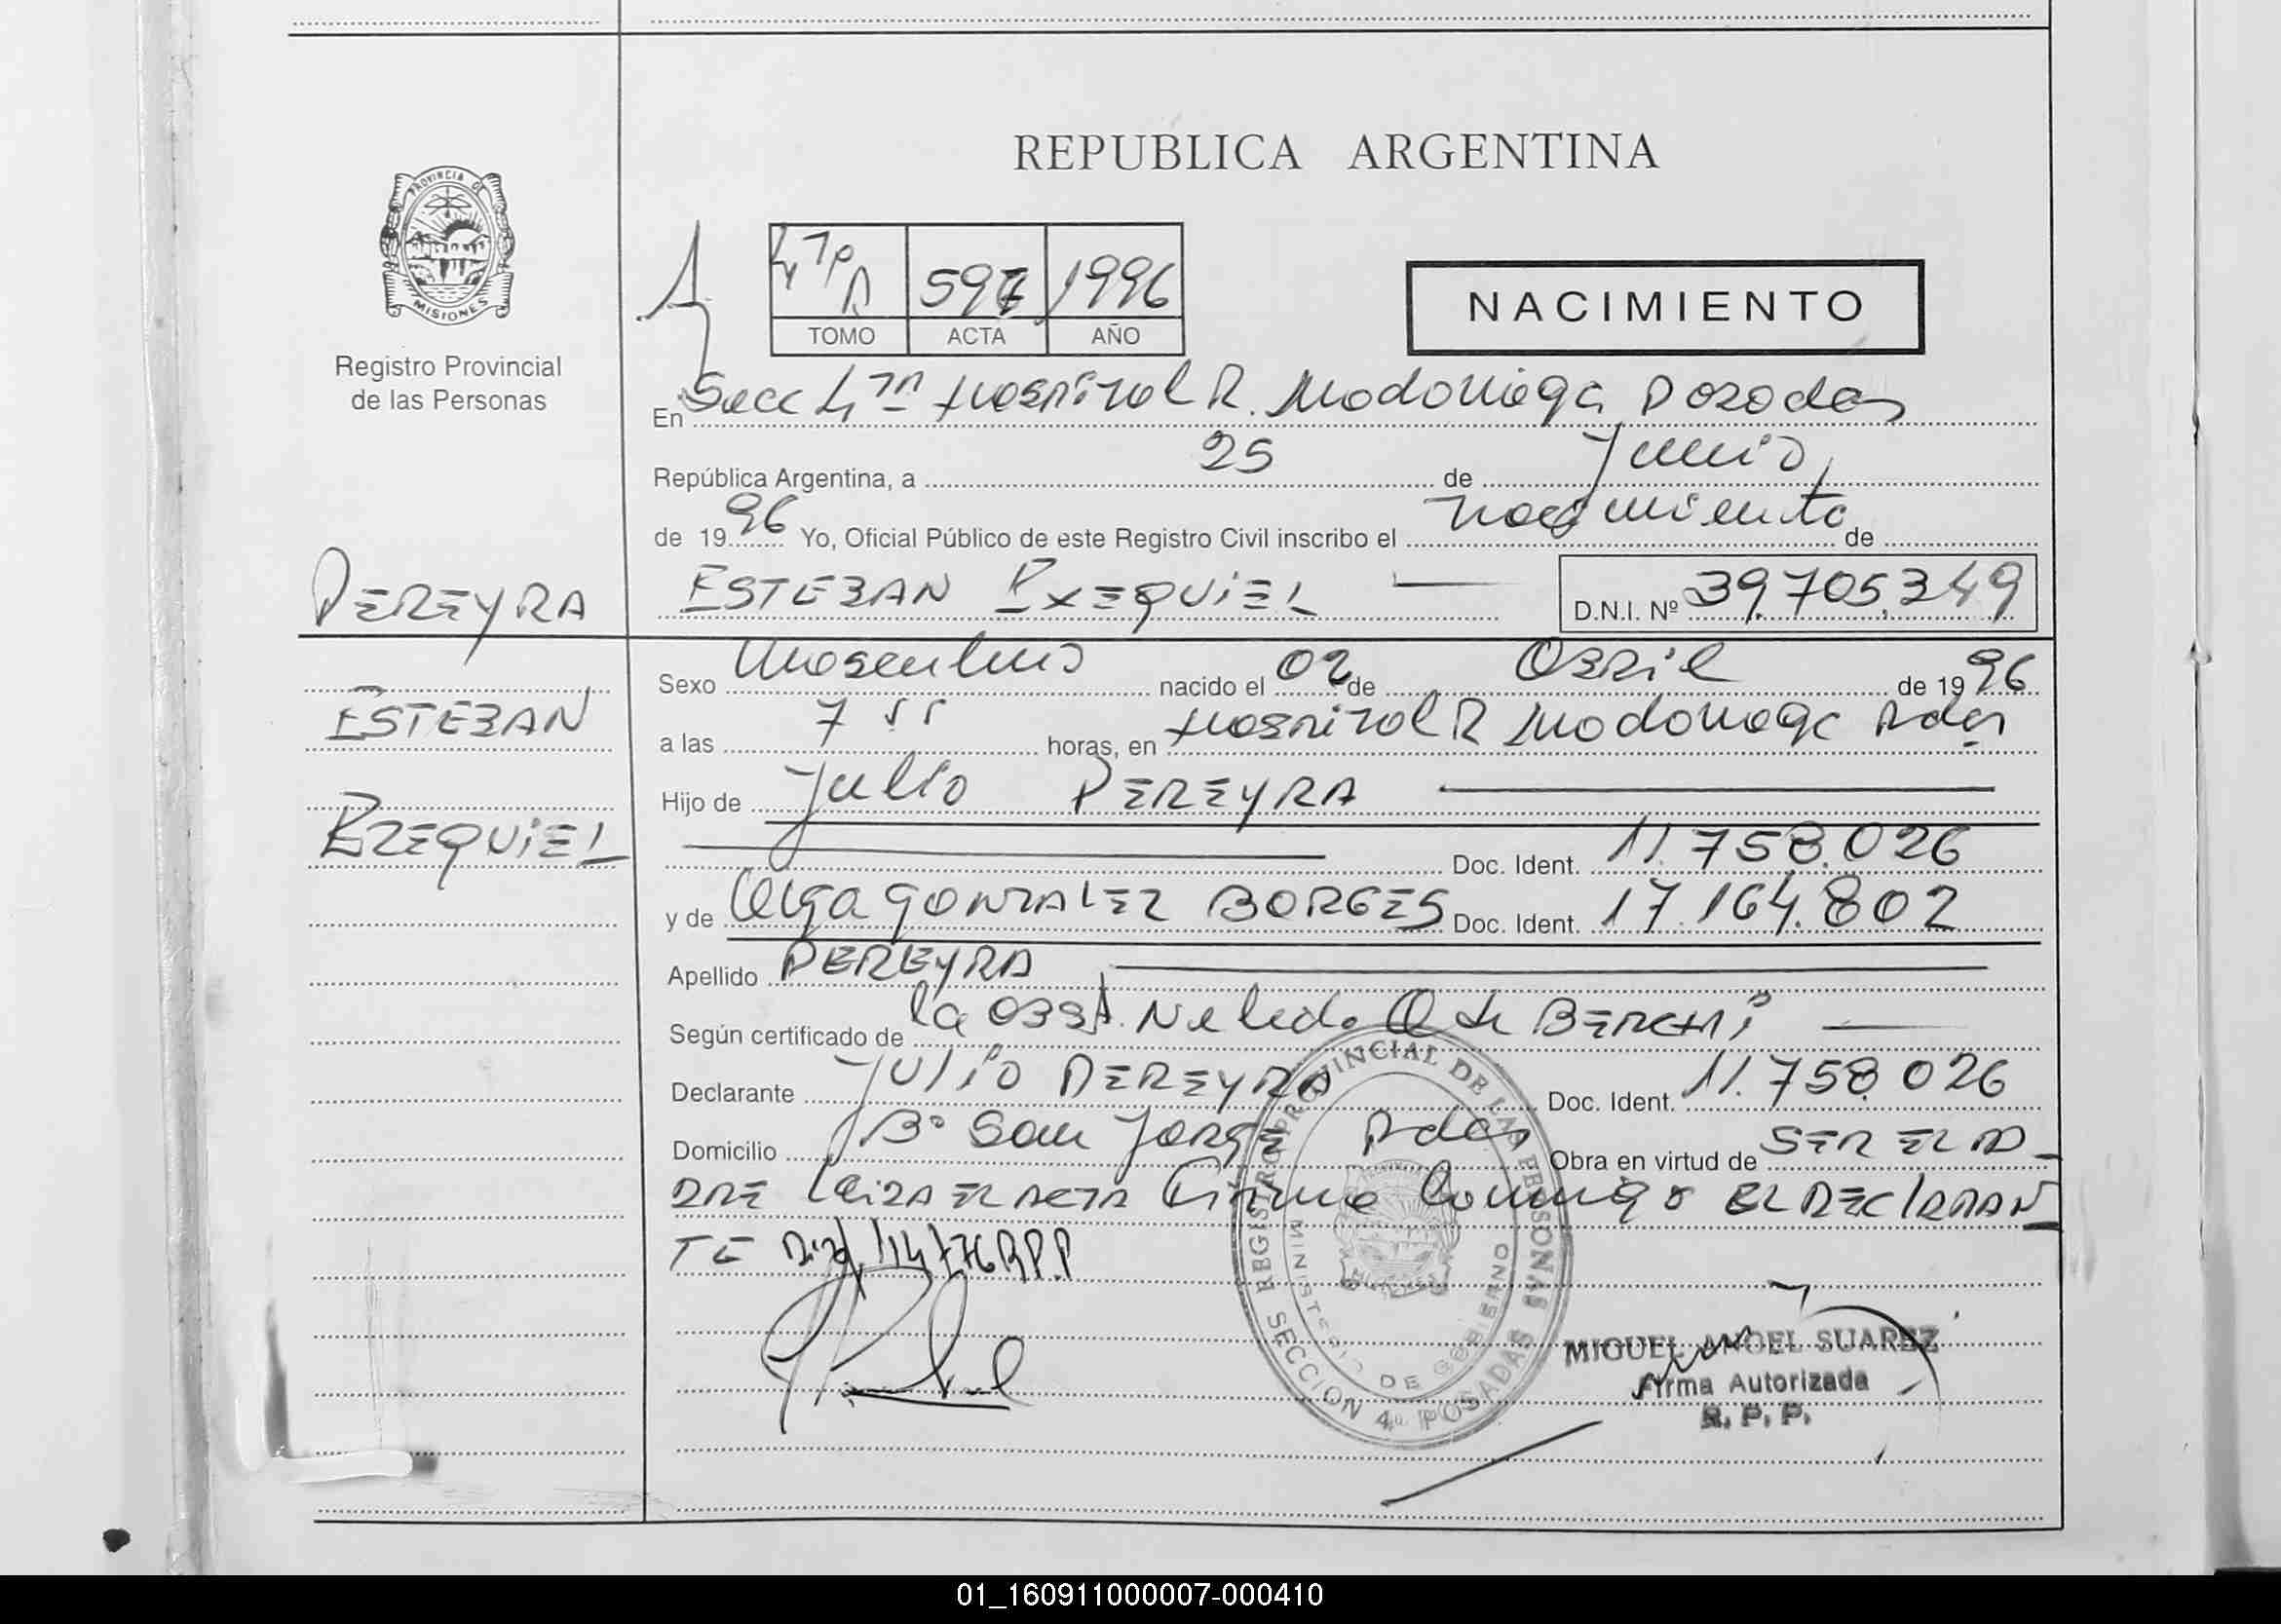 REPUBLICA ARGENTINA
PROVINCIA DE
MISIONES
Registro Provincial
de las Personas
1996
TOMO ACTA AÑO
NACIMIENTO
En Secc 4ta Hospital R. Madariaga Posadas
República Argentina, a 25 de Junio
de 1996 Yo, Oficial Público de este Registro Civil inscribo el nacimiento de
ESTEBAN EXEQUIEL
D.N.I. Nº 39.705.349
PEREYRA
ESTEBAN
EZEQUIEL
Sexo Masculino nacido el 02 de Abril de 1996
a las 7 55 horas, en Hospital R Madariaga Pdas
Hijo de Julio PEREYRA
Doc. Ident. 11.758.026
y de Olga GONZALEZ BORGES Doc. Ident. 17.164.802
Apellido PEREYRA
Según certificado de la Obst. Nelida O de BERCHI
Declarante JULIO PEREYRA Doc. Ident. 11.758.026
Domicilio Bº San Jorge Pdas Obra en virtud de SER EL PA_
DRE Leida EL ACTA Firma Conmigo EL DECLARAN_
TE
REGISTRO PROVINCIAL DE LAS PERSONAS
MINISTERIO DE GOBIERNO
SECCION 4a. POSADAS
MIGUEL ANGEL SUAREZ
Firma Autorizada
R. P. P.
01_160911000007-000410